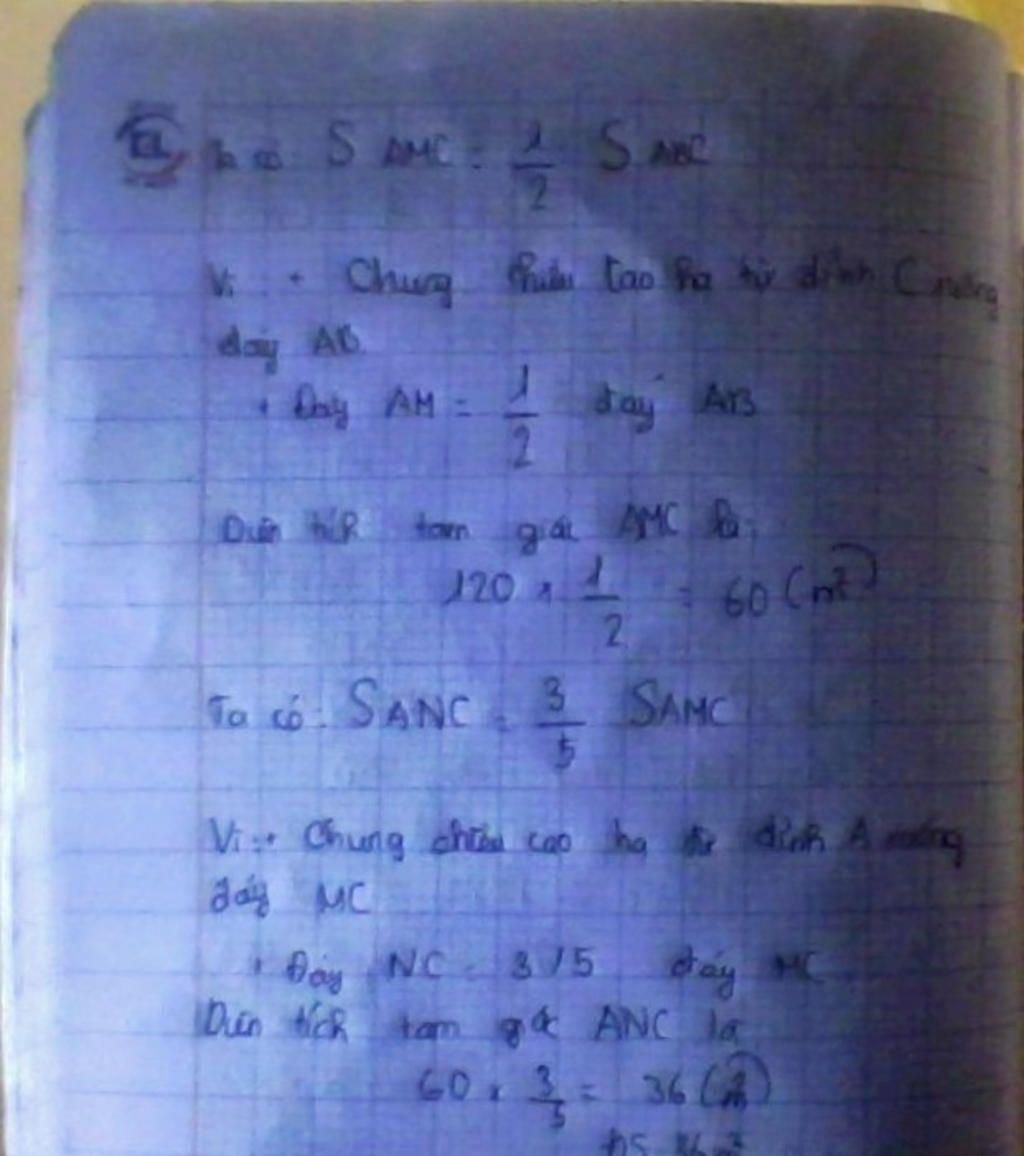 a, Ta có: S AMC = 1/2 S ABC
Vì: + Chung chiều cao hạ từ đỉnh C xuống
đáy AB
+ Đáy AM = 1/2 đáy AB
Diện tích tam giác AMC là:
120 x 1/2 = 60 (m²)
Ta có: SANC = 3/5 SAMC
Vì: + Chung chiều cao hạ từ đỉnh A xuống
đáy MC
+ Đáy NC = 3/5 đáy MC
Diện tích tam giác ANC là
60 x 3/5 = 36 (m²)
ĐS: 36m²